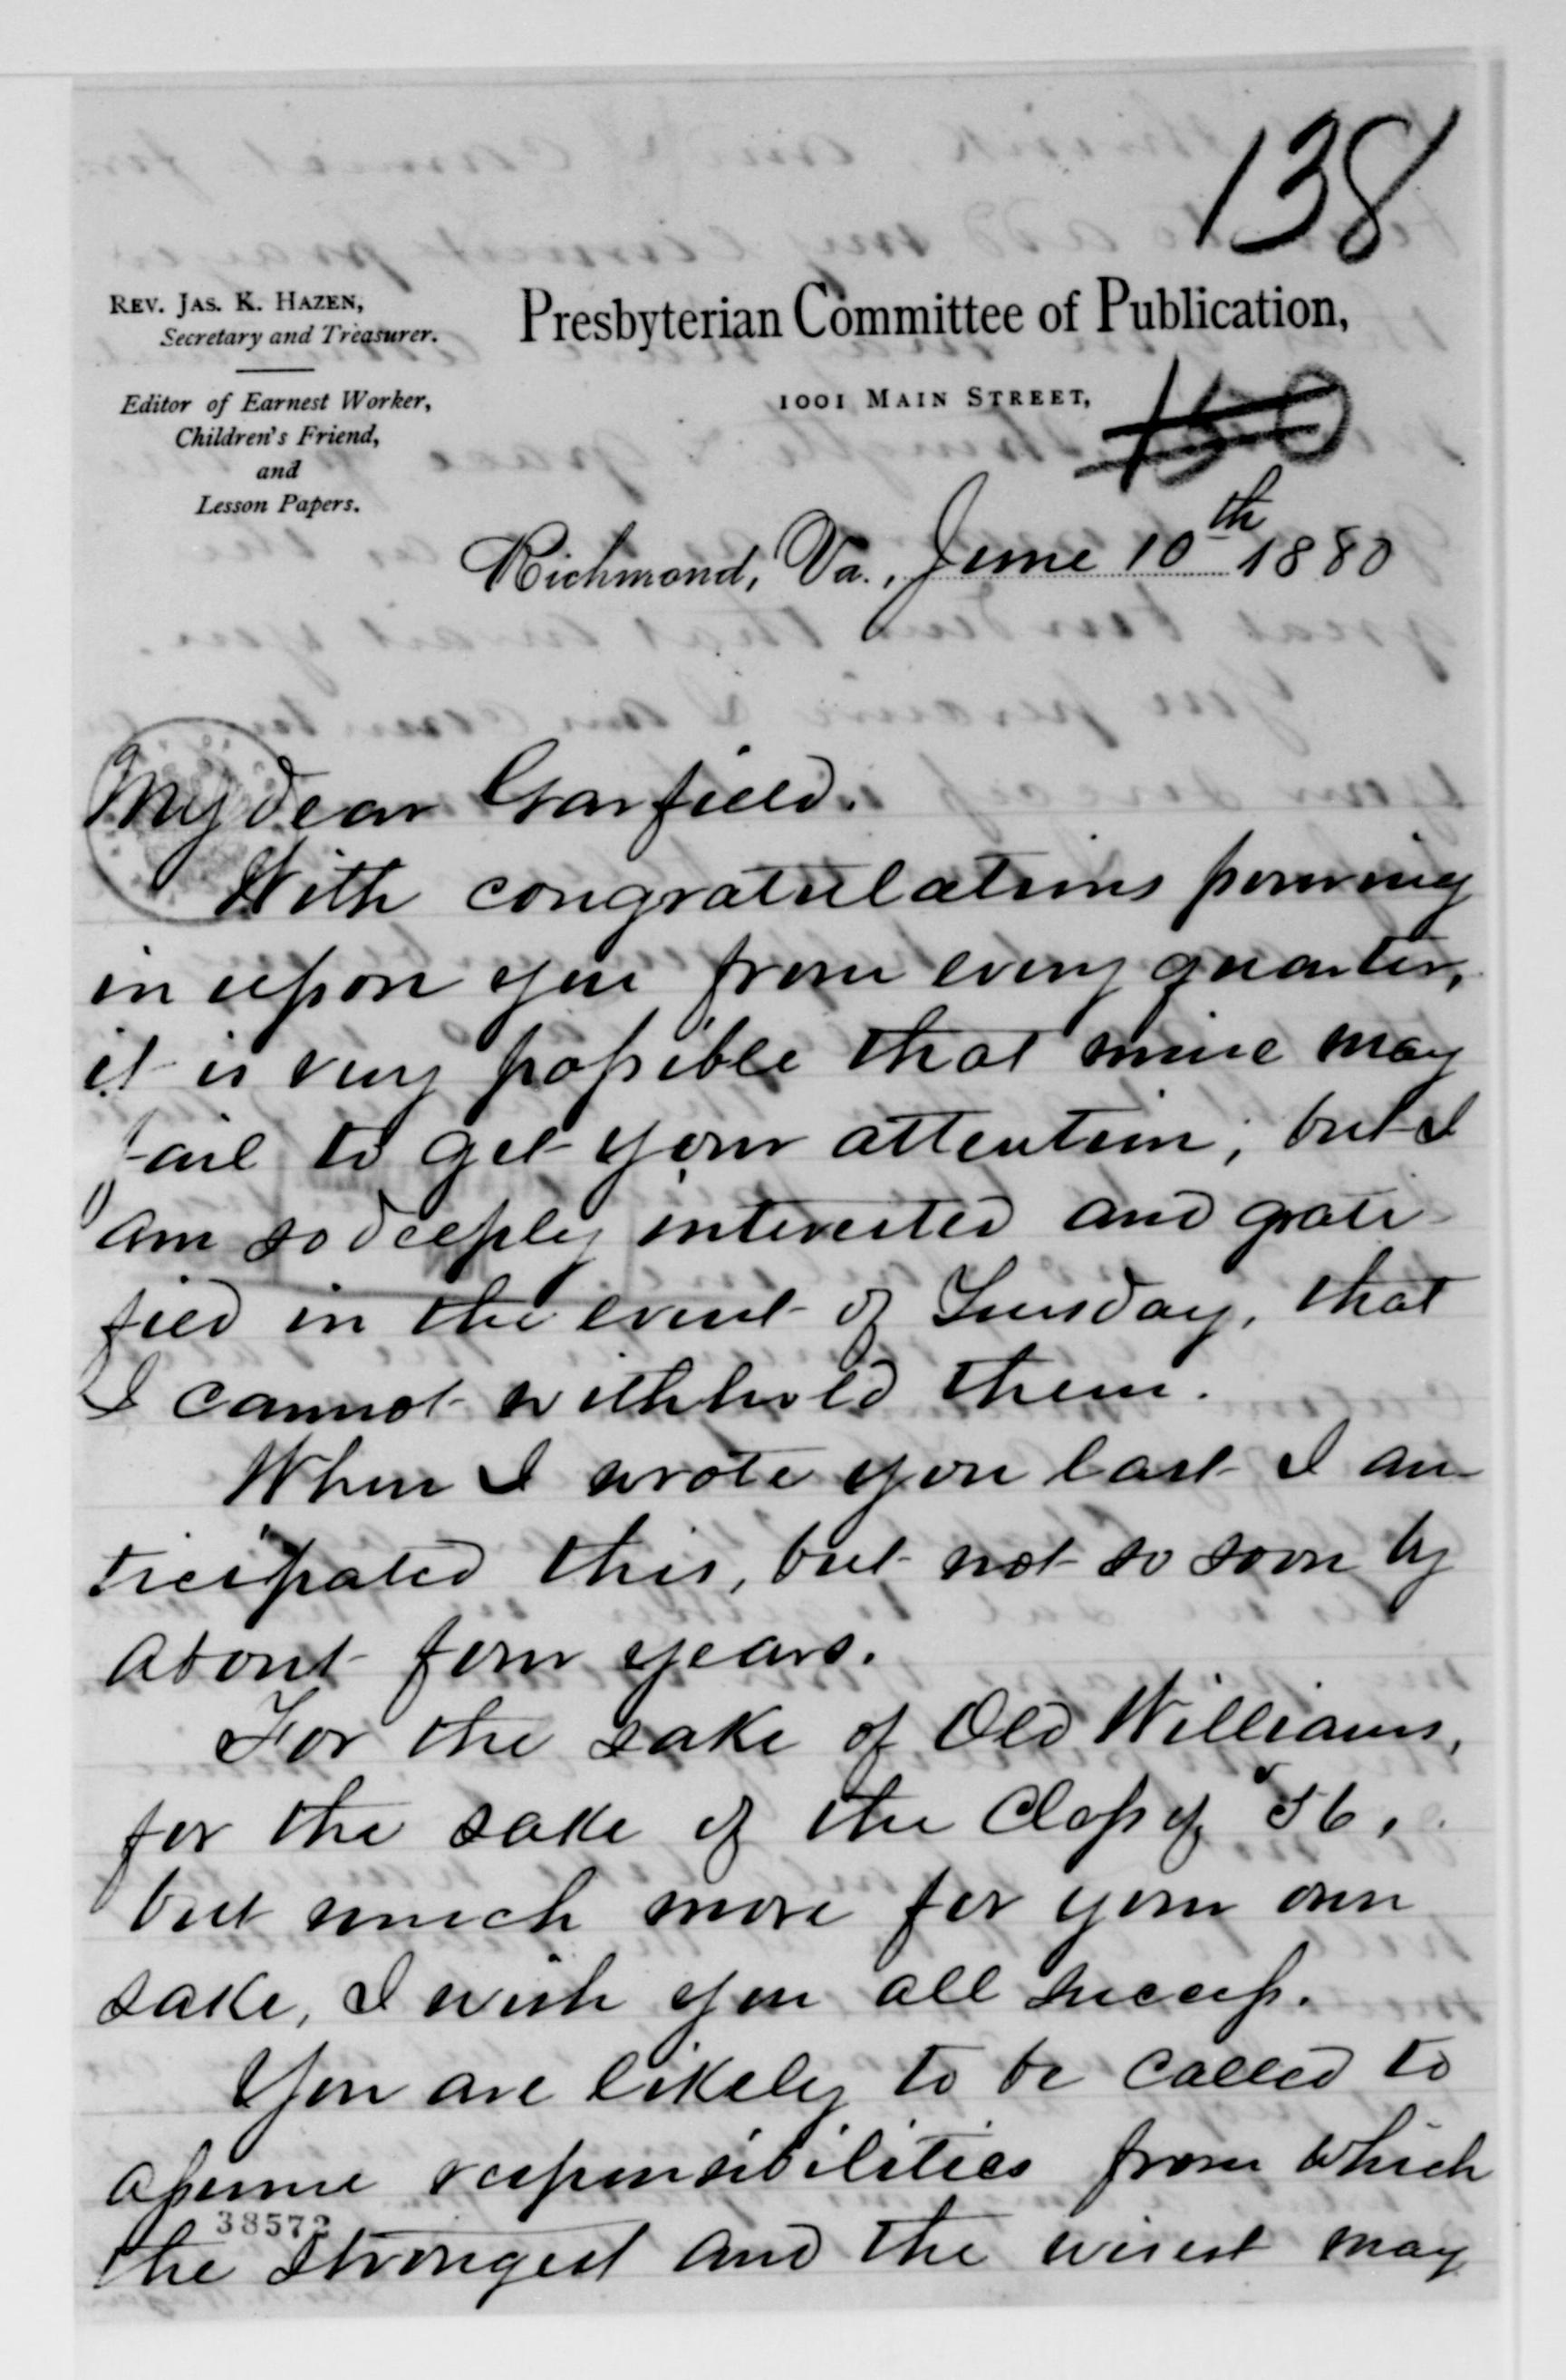 138
REV. JAS. K. HAZEN,
Secretary and Treasurer.
Editor of Earnest Worker,
Children's Friend,
and
Lesson Papers.
Presbyterian Committee of Publication,
1001 MAIN STREET,
150
Richmond, Va., June 10th 1880
My dear Garfield.
With congratulations pouring
in upon you from every quarter,
it is very possible that mine may
fail to get your attention; but I
am so deeply interested and grati-
fied in the event of Tuesday, that
I cannot withhold them.
When I wrote you last I an-
ticipated this, but not so soon by
about four years.
For the sake of Old Williams,
for the sake of the Class of '56,
but much more for your own
sake, I wish you all success.
You are likely to be called to
assume responsibilities from which
38572
the strongest and the wisest may